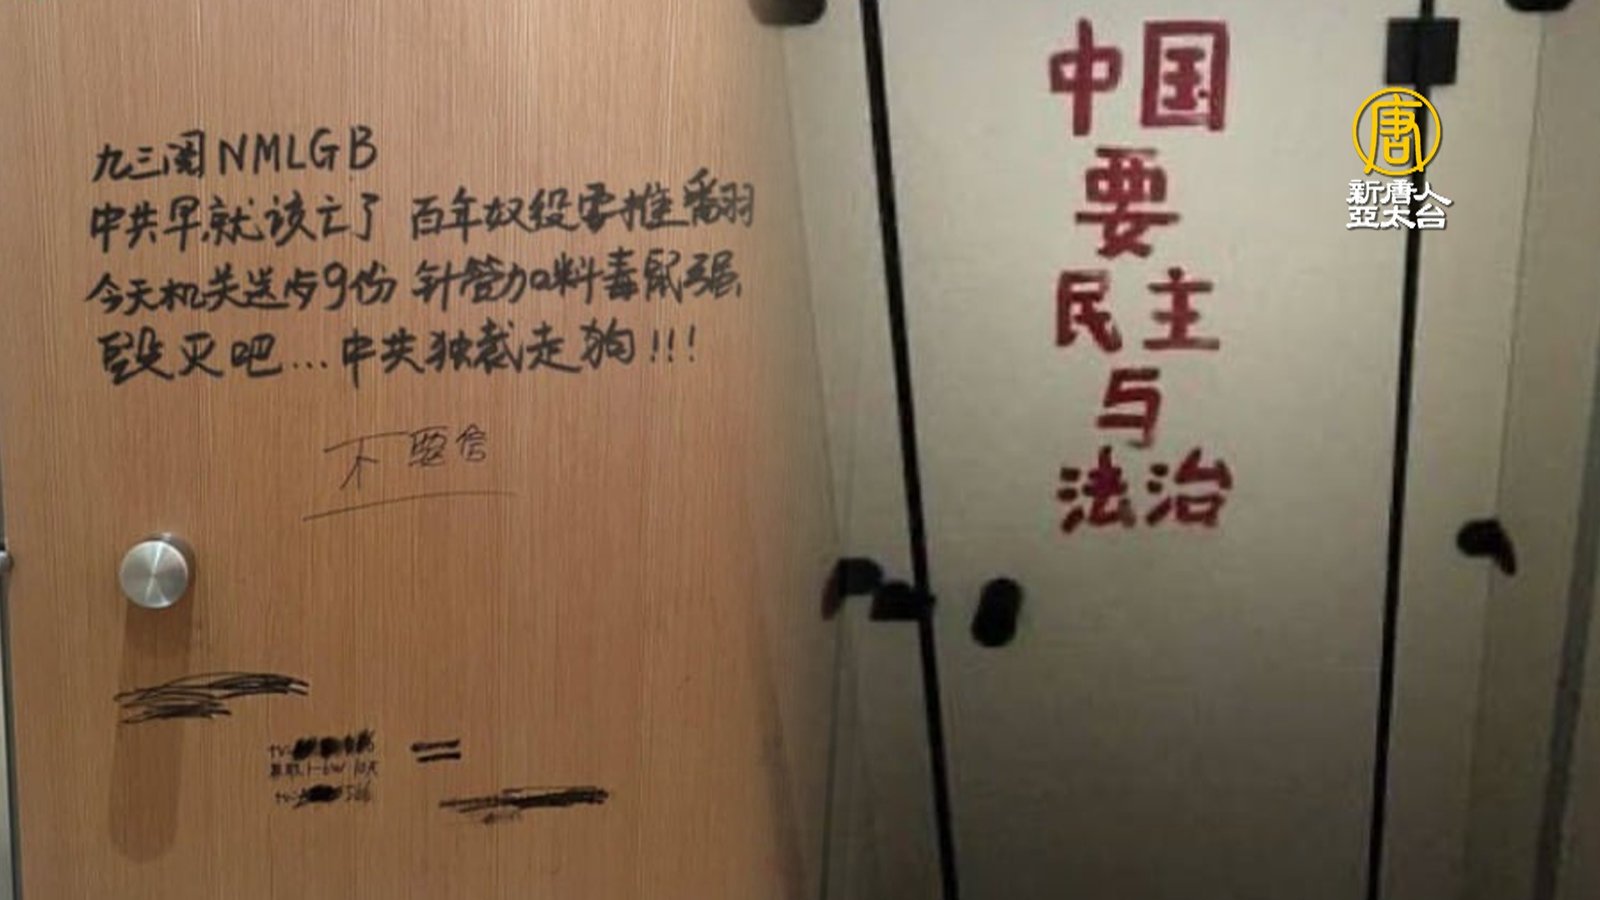 九三阅NMLGB
中共早就该亡了 百年奴役要推翻
今天机关送与9份 针管加料毒鼠强
毁灭吧...中共独裁走狗!!!
不要信
中国
要
民主
与
法治
唐
新唐人
亞太台